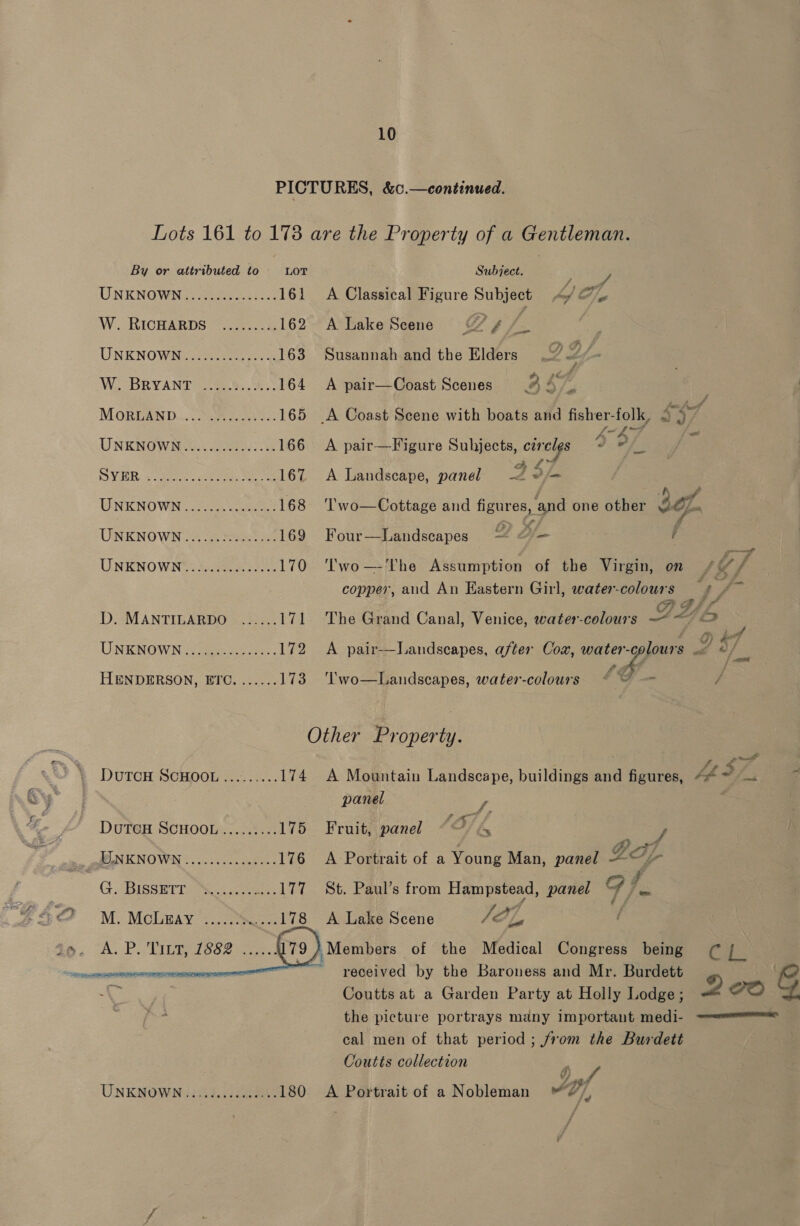 10
PICTURES, &c.—continued.
Lots 161 to 173 are the Property of a Gentleman.
By or attributed to LOT Subject.
UNKNOWN ............... 161 A Classical Figure Subject
W. RICHARDS ......... 162 A Lake Scene
UNKNOWN ............... 163 Susannah and the Elders
W. BRYANT ............ 164 A pair—Coast Scenes
MORLAND ............... 165 A Coast Scene with boats and fisher-folk,
UNKNOWN ............... 166 A pair—Figure Subjects, circles
SYER ..................... 167 A Landscape, panel
UNKNOWN ............... 168 Two—Cottage and figures, and one other
UNKNOWN ............... 169 Four—Landscapes
UNKNOWN ............... 170 Two—The Assumption of the Virgin, on
copper, and An Eastern Girl, water-colours
D. MANTILARDO ...... 171 The Grand Canal, Venice, water-colours
UNKNOWN ............... 172 A pair—Landscapes, after Cox, water-colours
HENDERSON, ETC. ...... 173 Two—Landscapes, water-colours
Other Property.
DUTCH SCHOOL ......... 174 A Mountain Landscape, buildings and figures,
panel
DUTCH SCHOOL ......... 175 Fruit, panel
UNKNOWN ............... 176 A Portrait of a Young Man, panel
G. BISSETT ............ 177 St. Paul's from Hampstead, panel
M. MCLEAY ............ 178 A Lake Scene
A. P. TILT, 1882 ...... 179 Members of the Medical Congress being
received by the Baroness and Mr. Burdett
Coutts at a Garden Party at Holly Lodge;
the picture portrays many important medi-
cal men of that period; from the Burdett
Coutts collection
UNKNOWN ............... 180 A Portrait of a Nobleman